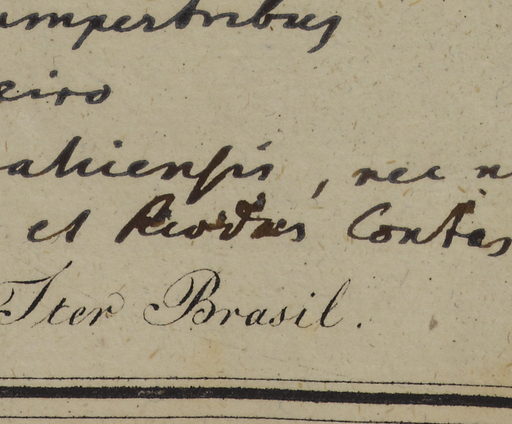 umpertribus
eiro
ahiensis, nec n
et Rio das Contas
Iter Brasil.